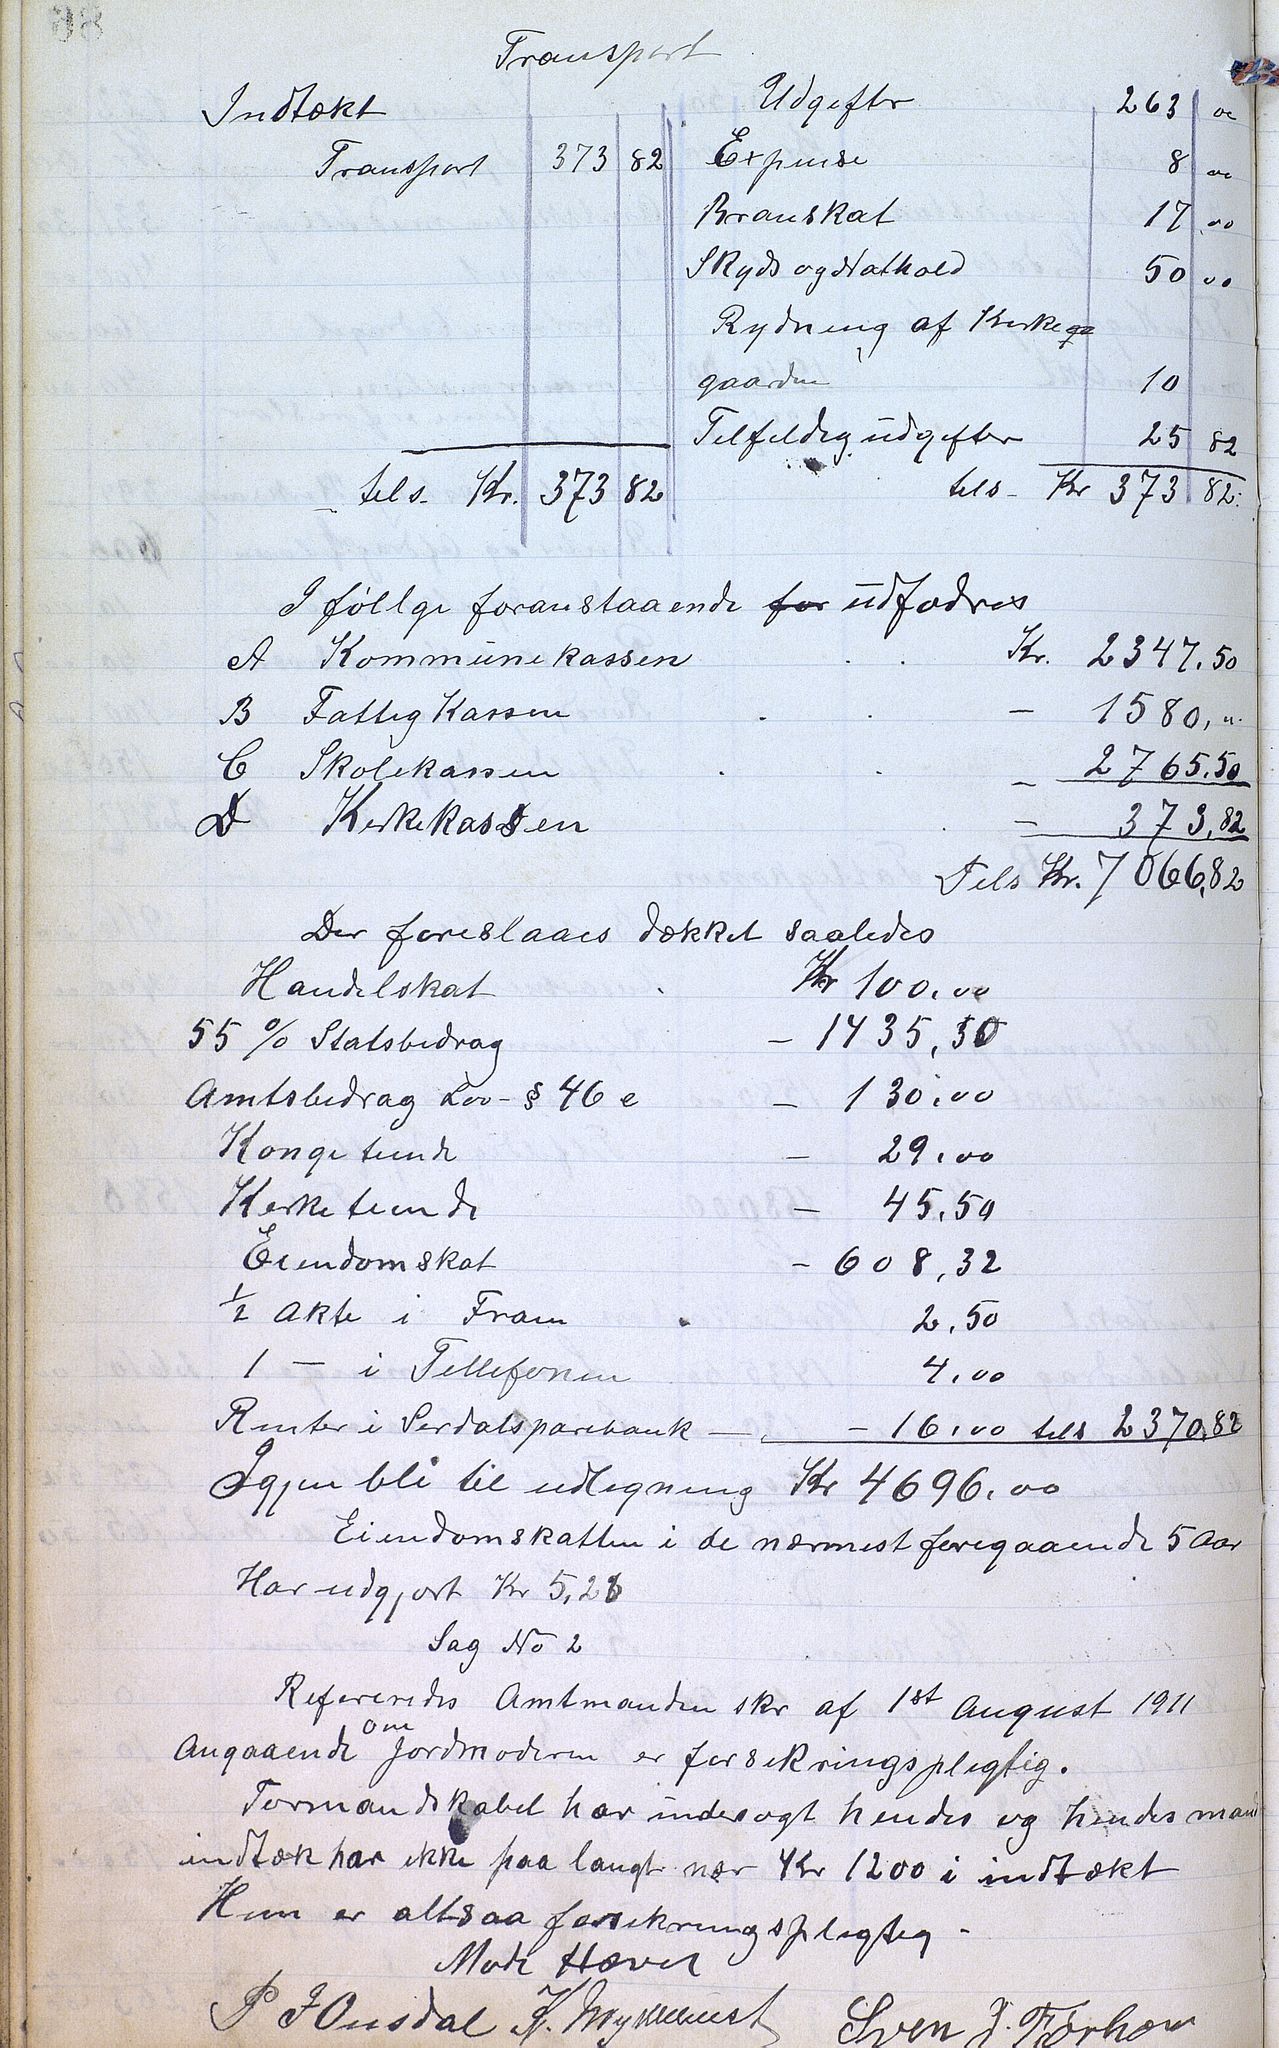 Transport
Indtækt
Transport 373 82
tils. Kr. 373 82
Udgifter 263 00
Expense 8 00
Branskat 17 00
Skyds og Nathold 50 00
Rydning af Kirke
gaarden 10
Tilfeldig udgifter 25 82
tils - Kr 373 82.
I føllge foranstaaende for udfodres
A Kommünekassen . . Kr. 2347.50
B Fattig Kassen . . — 1580,"
C Skolekassen . . — 2765.50
D Kirkekassen — 373,82
Tils Kr. 7066,82
Der foreslaaes dækket saaledes
Handelskat . Kr 100.00
55 % Statsbidrag — 1435,50
Amtsbidrag Lov - § 46 e — 130.00
Konge tiende — 29.00
Kirke tiende — 45,50
Eiendomskat — 608,32
1/2 Akte i Fram . 2.50
1 — i Tellefonen 4.00
Renter i Serdalsparebank — — 16.00 tils 2370,82
Igjen bli til udlegning Kr 4696.00
Eiendomskatten i de nærmest foregaaende 5 Aar
Har udgjort Kr 5,26
Sag No 2
Refereredes Amtmanden skr af 1st August 1911
Angaaende om Jordmoderen er forsikringspligtig.
Formandskabet har undersøgt hendes og hendes mand
indtæk har ikke paa langt nær Kr 1200 i indtækt
Hun er altsaa forsikringspligtig -
Møde Hævet
P J Ousdal K. Sven J.